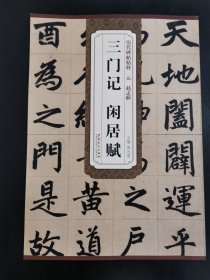 天地闔闢運乎
历代碑帖精粹 元 赵孟頫
三门记 闲居赋
黄道
酉為之門是故